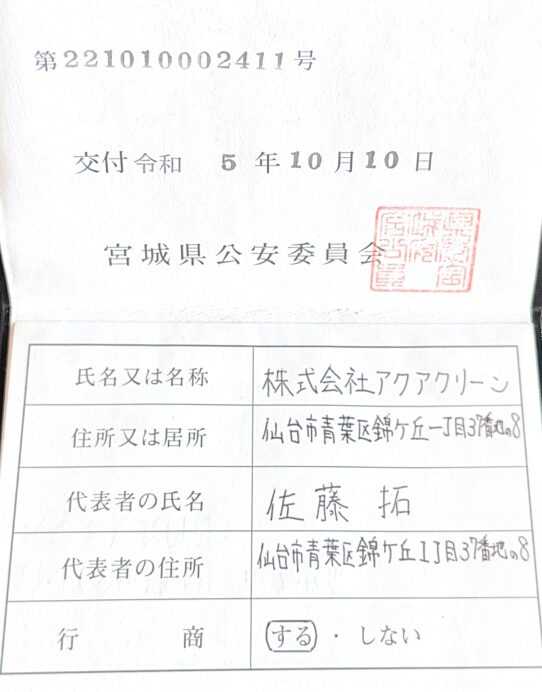 第221010002411号
交付 令和 5 年 10 月 10 日
宮城県公安委員会
氏名又は名称 株式会社アクアクリーン
住所又は居所 仙台市青葉区錦ケ丘一丁目37番地の8
代表者の氏名 佐藤 拓
代表者の住所 仙台市青葉区錦ケ丘1丁目37番地の8
行商 する ・ しない